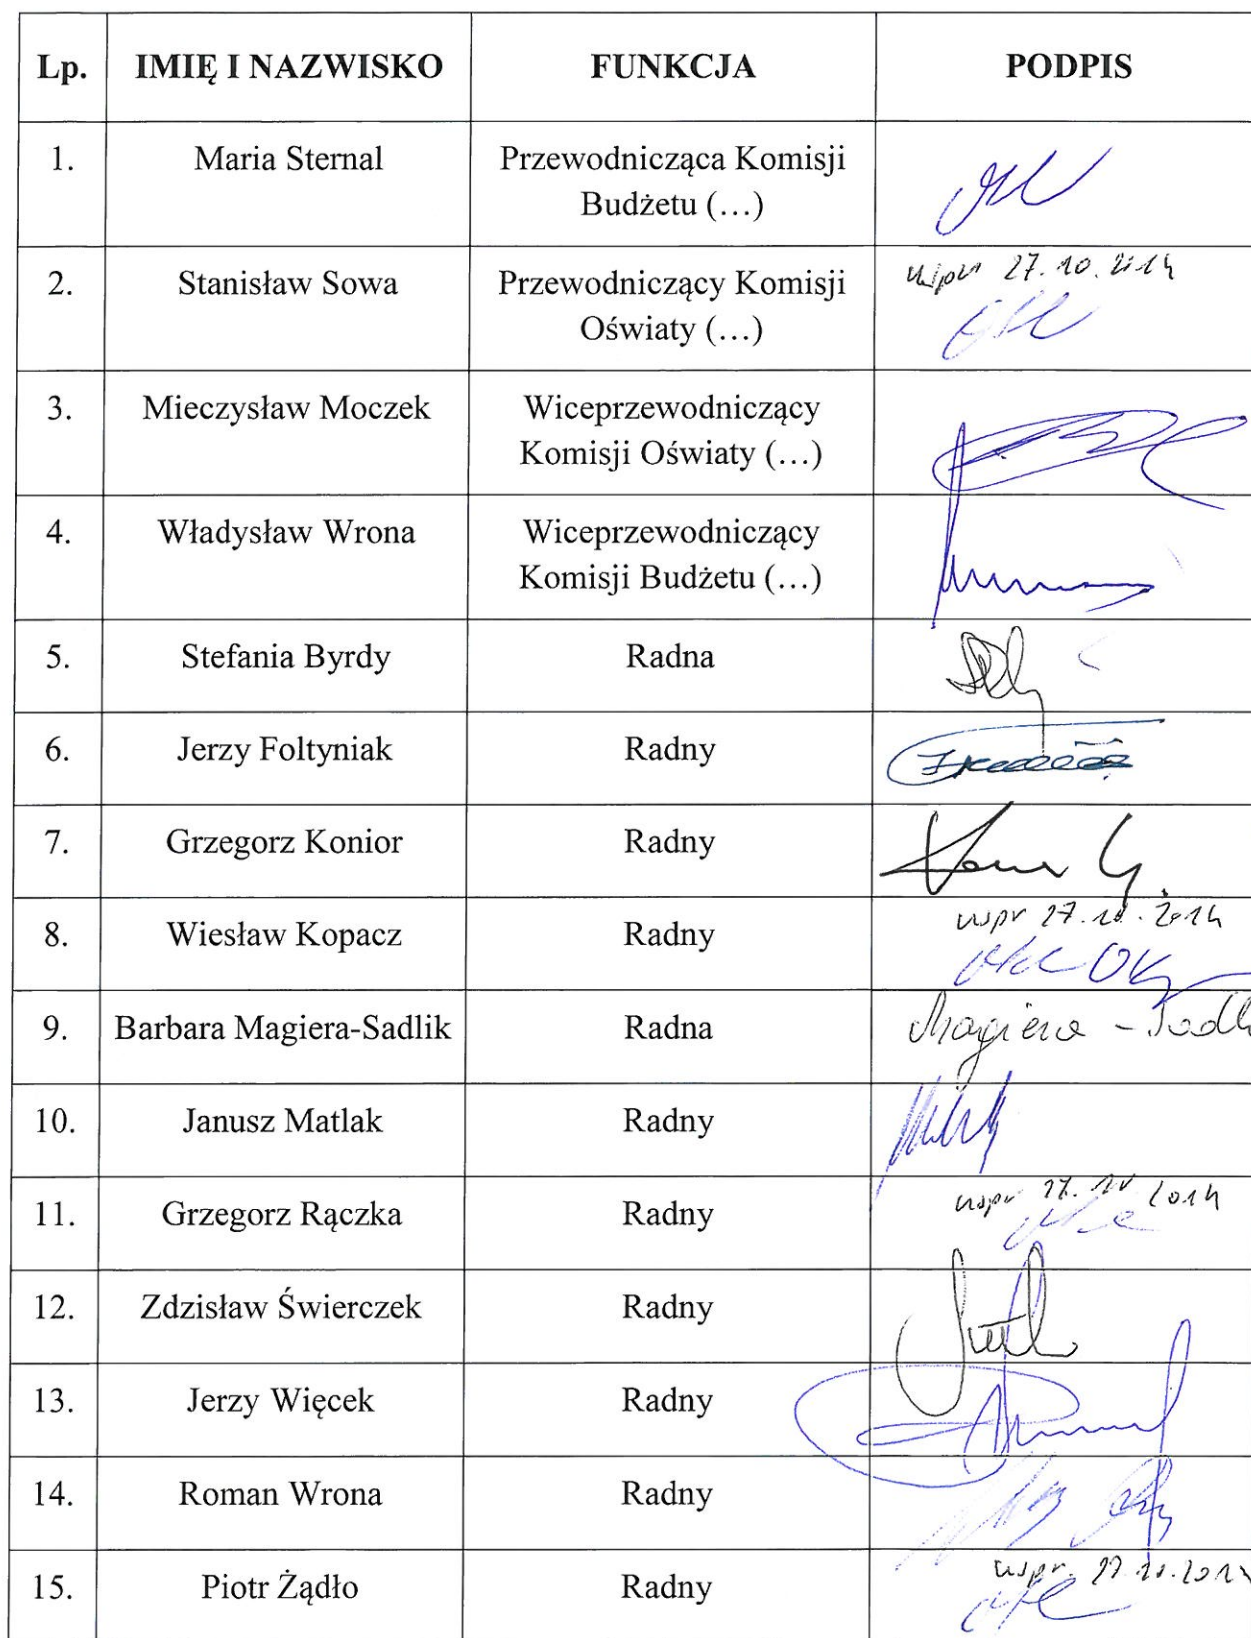 Lp. IMIĘ I NAZWISKO FUNKCJA PODPIS
1. Maria Sternal Przewodnicząca Komisji
Budżetu (…)
2. Stanisław Sowa Przewodniczący Komisji 27.10.2014
Oświaty (…)
3. Mieczysław Moczek Wiceprzewodniczący
Komisji Oświaty (…)
4. Władysław Wrona Wiceprzewodniczący
Komisji Budżetu (…)
5. Stefania Byrdy Radna
6. Jerzy Foltyniak Radny
7. Grzegorz Konior Radny
8. Wiesław Kopacz Radny wspr 27.10.2014
9. Barbara Magiera-Sadlik Radna Magiera - Sadli
10. Janusz Matlak Radny
11. Grzegorz Rączka Radny wspr 27.10 2014
12. Zdzisław Świerczek Radny
13. Jerzy Więcek Radny
14. Roman Wrona Radny
15. Piotr Żądło Radny wspr. 27.10.2014